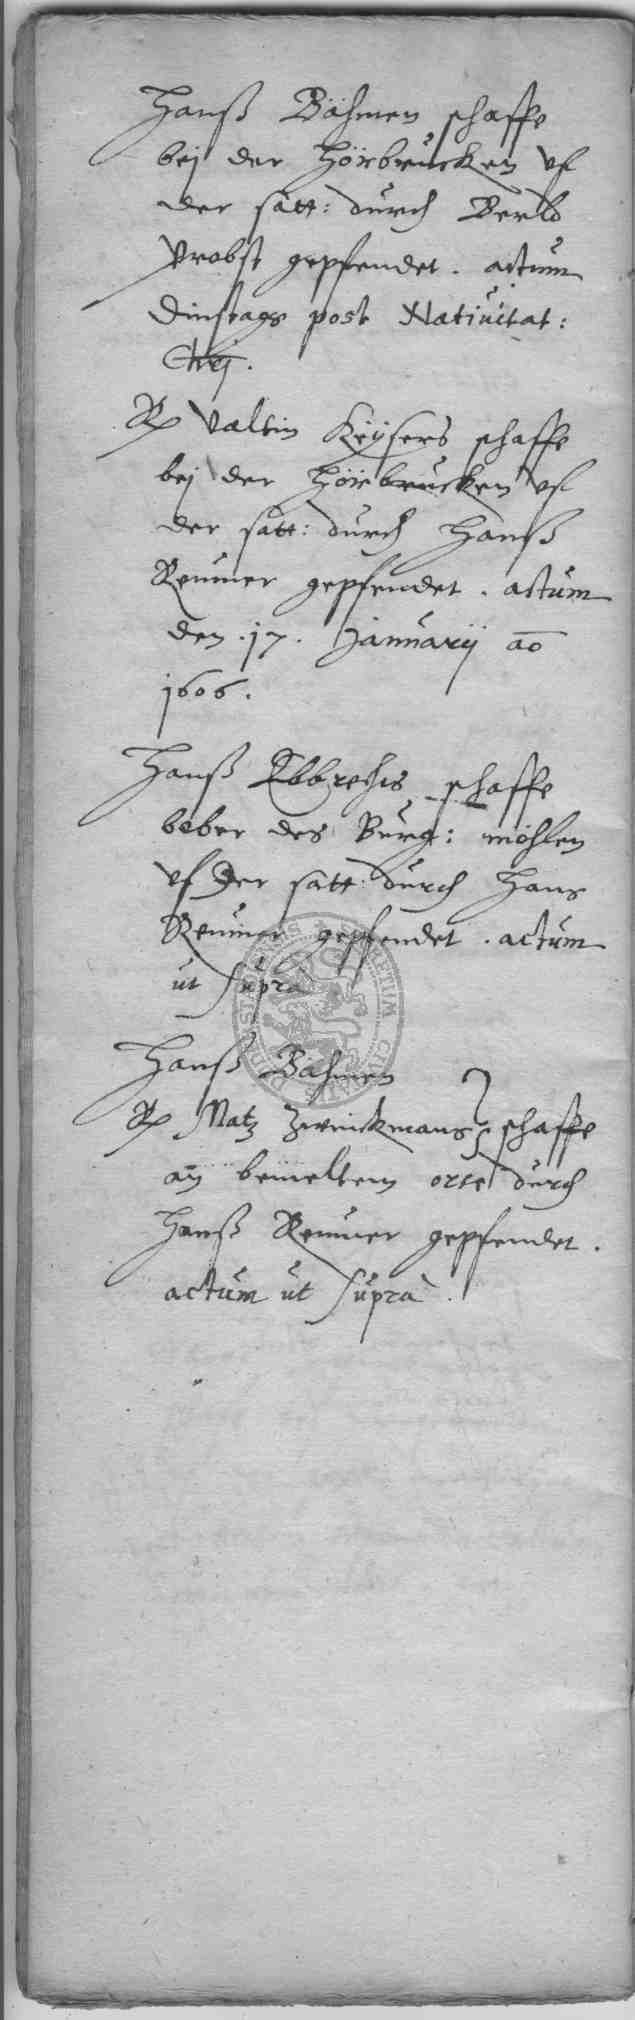 Hanß Bähmen schaffe
bej der Hörbrucken vf
der satt: durch Berld
Probst gepfendet. actum
Dinstags post Natiuitat:
Chrj.
Rp Valtin Keÿsers schaffe
bej der Hörbrucken vf
der satt: durch Hanß
Renner gepfendet. actum
den .17. Januarij ao
1606.
Hanß Ebbrechts schaffe
bober des Burg: mohlen
vf Der satt durch Hans
Renner gepfendet. actum
ut supra
Hanß Bähmen
Rp Matz Zwinckmans schaffe
an bemeltem orte durch
Hanß Renner gepfendet.
actum ut supra.